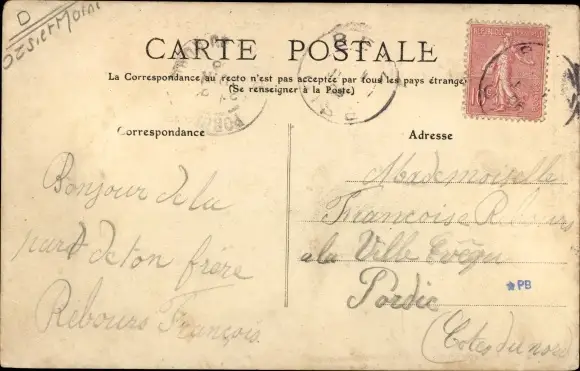 D
CARTE POSTALE
La Correspondance au recto n'est pas acceptée par tous les pays étrange
(Se renseigner à la Poste)
Correspondance
Bonjour de la
part de ton frére
Rebours François
Adresse
Mademoiselle
Francoise R
a la Ville
Pordic
(Cotes du nord
PB